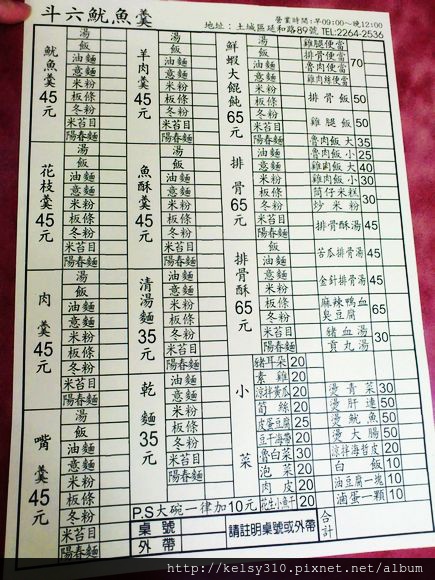 斗六魷魚羹
營業時間:早09:00～晚12:00
地址:土城區延和路89號 TEL:2264-2536
魷魚羹45元
湯
飯
油麵
意麵
米粉
板條
冬粉
米苔目
陽春麵
花枝羹45元
湯
飯
油麵
意麵
米粉
板條
冬粉
米苔目
陽春麵
肉羹45元
湯
飯
油麵
意麵
米粉
板條
冬粉
米苔目
陽春麵
嘴羹45元
湯
飯
油麵
意麵
米粉
板條
冬粉
米苔目
陽春麵
羊肉羹45元
湯
飯
油麵
意麵
米粉
板條
冬粉
米苔目
陽春麵
魚酥羹45元
湯
飯
油麵
意麵
米粉
板條
冬粉
米苔目
陽春麵
清湯麵35元
油麵
意麵
米粉
板條
冬粉
米苔目
陽春麵
乾麵35元
油麵
意麵
米粉
板條
冬粉
米苔目
陽春麵
鮮蝦大餛飩65元
湯
飯
油麵
意麵
米粉
板條
冬粉
米苔目
陽春麵
排骨65元
湯
油麵
意麵
米粉
板條
冬粉
米苔目
陽春麵
排骨酥65元
湯
油麵
意麵
米粉
板條
冬粉
米苔目
陽春麵
小菜
豬耳朵 20
素雞 20
涼拌黃瓜 20
筍絲 20
皮蛋豆腐 25
豆干海帶 20
魯白菜 30
泡菜 20
肉皮 20
花生小魚干 20
雞腿便當
排骨便當
魯肉便當
雞肉絲便當
70
排骨飯 50
雞腿飯 50
魯肉飯大 35
魯肉飯小 25
雞肉飯大 40
雞肉飯小 30
筒仔米糕 30
炒米粉 30
排骨酥湯 45
苦瓜排骨湯 45
金針排骨湯 45
麻辣鴨血臭豆腐 65
豬血湯 30
貢丸湯 30
燙青菜 30
燙肝連 50
燙魷魚 50
燙大腸 50
涼拌海哲皮 20
白飯 10
油豆腐一塊 10
滷蛋一顆 10
P.S大碗一律加10元
桌號
外帶
請註明桌號或外帶
合計
http://kelsy310.pixnet.net/album